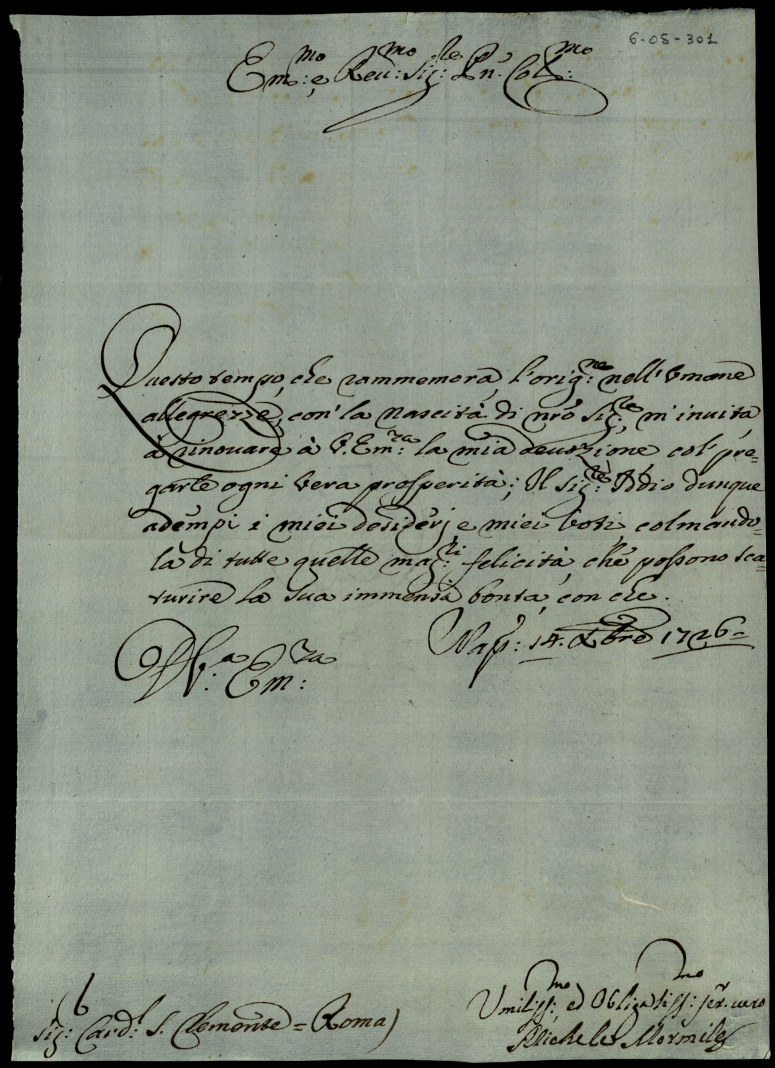 6-05-301
Em:mo e Reu:mo Sig:re Pn̄. Col:mo
Questo tempo, che rammemora l'orig:ne nell'Vmane
allegrezze, con la nascita di nr̃o Sig:re, m'inuita
à rinouare à V. Em:za la mia deuozione col pre-
garle ogni vera prosperità; Il Sig:re Iddio dunque
adempi i miei desiderj e miei voti, colmando-
la di tutte quelle mag:ri felicità, che possono sca-
turire la sua immensa bontà, con che.
Nap: 14. Xbre 1726=
D V:a Em:za
Sig: Card.l S. Clemente = Roma)
Vmiliss:mo, ed Obligatiss:mo ser. vero
Michele Mormile